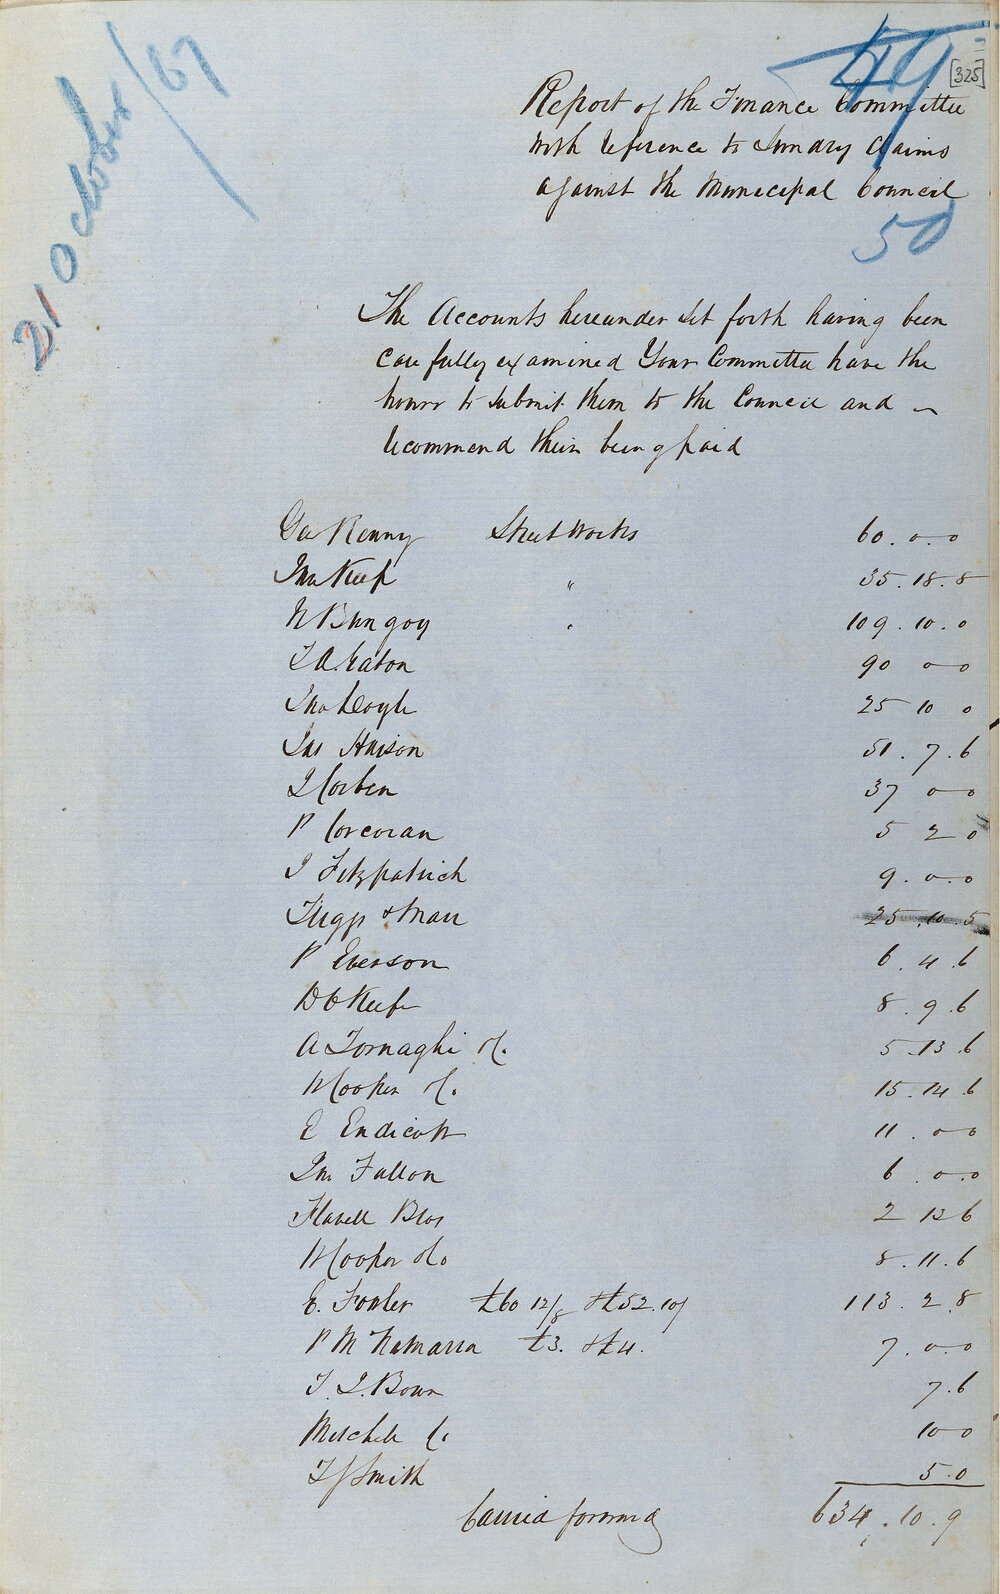 21 October / 67
49
[325]
Report of the Finance Committee
with reference to Sundry Claims
against the Municipal Council
50
The Accounts hereunder set forth having been
carefully examined Your Committee have the
honor to submit them to the Council and
recommend their being paid
Geo Renny Street Works 60 . 0 . 0
Jno Keep " 35 . 18 . 8
109 . 10 . 0
T A Eaton 90 0 0
Jno Doyle 25 10 0
Jas 51 . 7 . 6
J Corben 37 0 0
P Corcoran 5 2 0
J Fitzpatrick 9 . 0 . 0
25 . 10 . 5
P Everson 6 . 4 . 6
D O Keefe 8 . 9 . 6
A Tornaghi 5 . 13 . 6
W Cooper 15 . 14 . 6
E Endicott 11 . 0 0
Fallon 6 . 0 . 0
Flavell Bros 2 12 6
W Cooper & Co 8 . 11 . 6
E. Fowler £60 12/8 & £52.10/ 113 . 2 . 8
P McNamarra £3. & £4. 7 . 0 . 0
T. J. Bown 7 . 6
Mitchell & Co 10 0
T J Smith 5 . 0
Carried forward 634 . 10 . 9